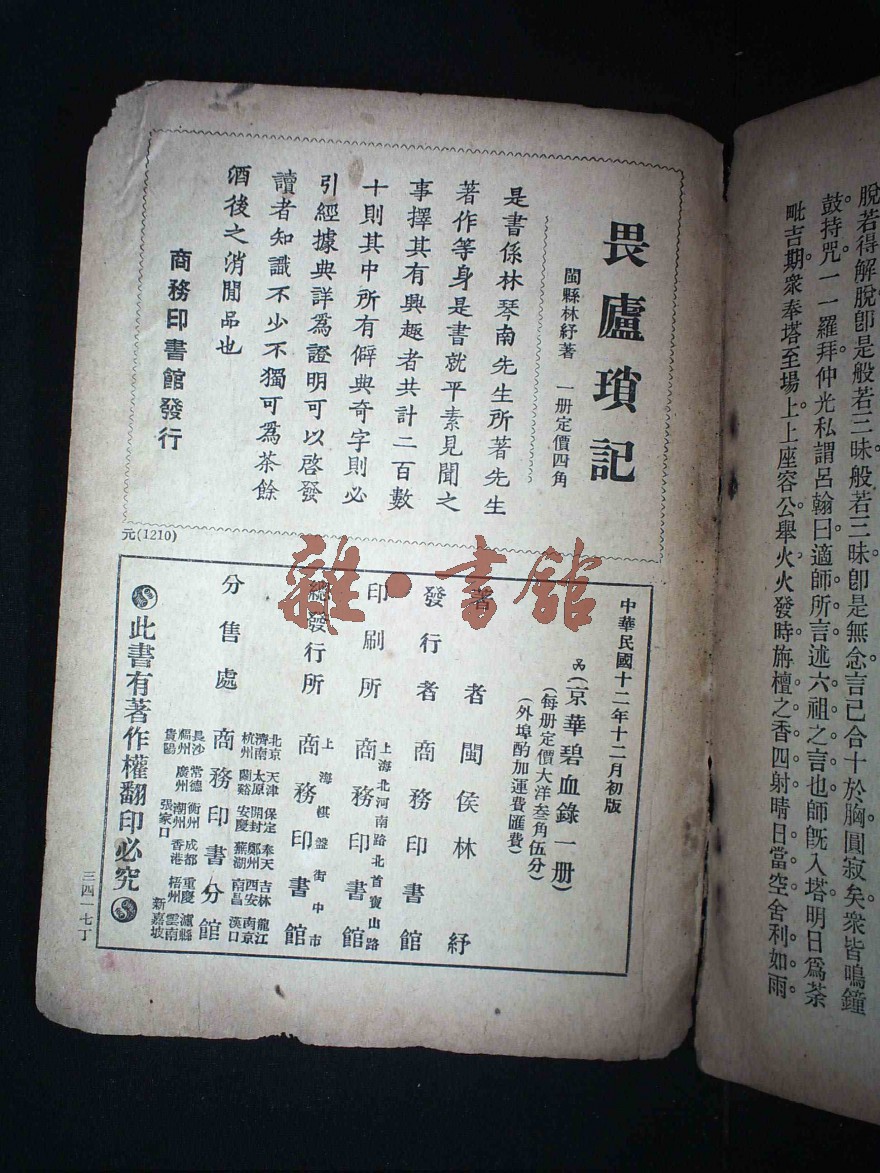 脫若得解脫卽是般若三昧般若三昧卽是無念言已合十於胸圓寂矣衆皆鳴鐘
鼓持咒一一羅拜仲光私謂呂翰曰適師所言述六祖之言也師旣入塔明日爲荼
毗吉期衆奉塔至場上上座容公舉火火發時旃檀之香四射晴日當空舍利如雨
畏廬瑣記
閩縣林紓著 一册定價四角
是書係林琴南先生所著先生
著作等身是書就平素見聞之
事擇其有興趣者共計二百數
十則其中所有僻典奇字則必
引經據典詳爲證明可以啓發
讀者知識不少不獨可爲茶餘
酒後之消閒品也
商務印書館發行
元(1210)
雜·書館
中華民國十二年十二月初版
(京華碧血錄一册)
(每册定價大洋叁角伍分)
(外埠酌加運費匯費)
著者 閩侯林紓
發行者 商務印書館
印刷所 上海北河南路北首寶山路 商務印書館
總發行所 上海棋盤街中市 商務印書館
分售處 商務印書分館
北京 天津 保定 奉天 吉林 龍江
濟南 太原 開封 鄭州 西安 南京
杭州 蘭谿 安慶 蕪湖 南昌 漢口
長沙 常德 衡州 成都 重慶 瀘縣
福州 廣州 潮州 香港 梧州 雲南
貴陽 張家口 新嘉坡
此書有著作權翻印必究
三四一七丁